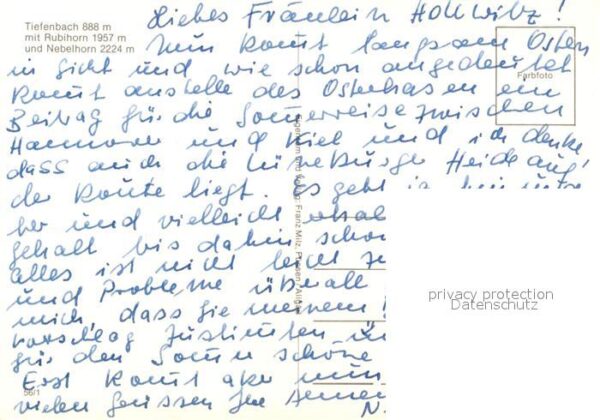 Tiefenbach 888 m
mit Rubihorn 1957 m
und Nebelhorn 2224 m
Liebes Fräulein Hollwitz!
Nun komt langsam Ostern
in Sicht und wie schon angedeutet
komt anstelle des Osterhasen ein
Beitrag für die Sommerreise zwischen
Hannover und Kiel und ich denke
dass auch die Lüneburger Heide auf
der Route liegt. Es geht ja hin
her und vielleicht
gehalt bis dahin schon
alles ist nicht leicht zu
und Probleme überall
mich, dass Sie meinem
vorschlag zustimten und
für den Somer schöne
Erst komt aber nun
vielen Grüssen Ihr
N.
Farbfoto
Franz Milz,
56/1
privacy protection
Datenschutz